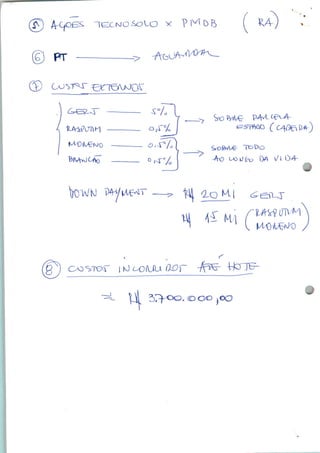 ⑤ AÇÕES TECNOSOLO x PMDB (RA)
⑥ PT → AGUARDAR
⑦ CUSTOS EXTERNOS
GERJ — 5%
RASPUTIM — 0,5%
→ SOBRE PARCELA ESTADO (CAPEIRA)
MORENO — 0,5%
BRANCÃO — 0,5%
→ SOBRE TODO AO LONGO DA VIDA
DOWN PAYMENT → R$ 20 Mi GERJ
R$ 15 Mi (RASPUTIM / MORENO)
⑧ CUSTOS INCORRIDOS ATÉ HOJE
R$ 3.700.000,00